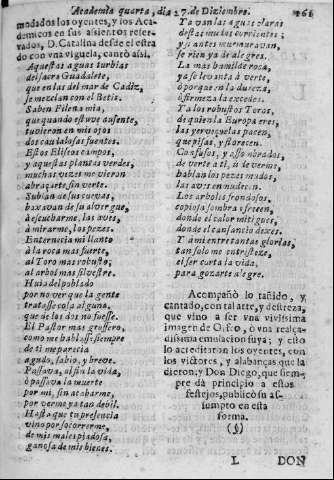 Academia quarta, dia 27. de Diziembre. 161
modados los oyentes, y los Aca-
demicos en sus assientos reser-
vados, D. Catalina desde el estra
do con vna viguela, cantò assi.
Aquestas aguas turbias
del sacro Guadalete,
que en las del mar de Cadiz,
se mezclan con el Betis.
Saben Filena mia,
que quando estuve ausente,
tuvieron en mis ojos
dos caudalosas fuentes.
Estos Eliseos campos,
y aquestas plantas verdes,
muchas vezes me vieron
abraçarte, sin verte.
Subian de sus cuevas,
baxavan de su alvergue,
à escucharme, las aves,
à mirarme, los pezes.
Enternecia mi llanto
à la roca mas fuerte,
al Toro mas robusto,
al arbol mas silvestre.
Huia del poblado
por no ver que la gente
tratasse cosa alguna
que de los dos no fuesse.
El Pastor mas grossero,
como me hablasse siempre
de ti me parecia
agudo, sabio, y breve.
Passava, al fin la vida,
ò passava la muerte
por mi, sin acabarme,
por verme ya tan debil.
Hasta que tu presencia
vino por socorrerme,
de mis males piadosa,
ganosa de mis bienes.
Ya van las aguas claras
destas mudas corrientes;
y si antes murmuravan,
se rien ya de alegres.
La mas humilde rosa,
ya se levanta à verte,
ò porque en la dureza,
ò firmeza la excedes.
Ya los robustos Toros,
de quien la Europa eres;
las yervezuelas pacen,
que pisas, y florecen.
Confusos, y assombrados,
de verte a ti, ù de verme,
hablan los pezes mudos,
las aves enmudecen.
Los arboles frondosos,
copiosa sombra ofrecen,
donde el calor mitigues,
donde el cansancio dexes.
Y à mi entre tantas glorias,
tan solo me entristeze,
el ser corta la vida,
para gozarte alegre.
Acompañò lo tañido, y
cantado, con tal arte, y destreza,
que vino a ser vna vivissima
imagen de Orfeo, ò vna realça-
dissima emulacion suya; y esto
lo acreditaron los oyentes, con
los vìctores, y alabanças que la
dieron; y Don Diego, que siem-
pre dà principio a estos
festejos, publicò su as-
sumpto en esta
forma.
(§)
L DON